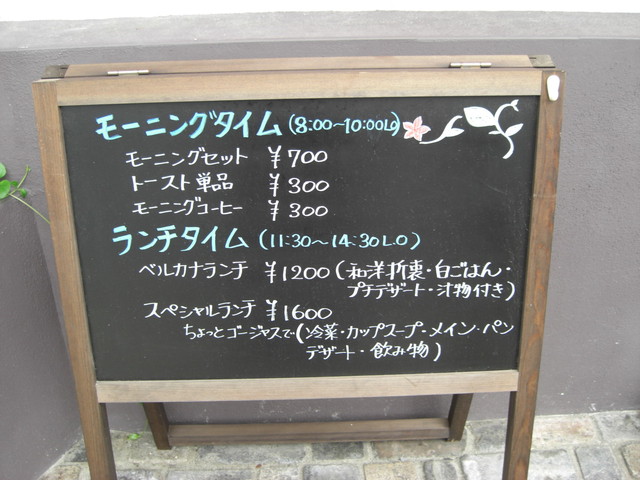 モーニングタイム (8:00~10:00LO)
モーニングセット ¥700
トースト単品 ¥300
モーニングコーヒー ¥300
ランチタイム (11:30~14:30L.O)
ベルカナランチ ¥1200 (和洋折裏・白ごはん・
プチデザート・汁物付き)
スペシャルランチ ¥1600
ちょっとゴージャスで(冷菜・カップスープ・メイン・パン
デザート・飲み物)